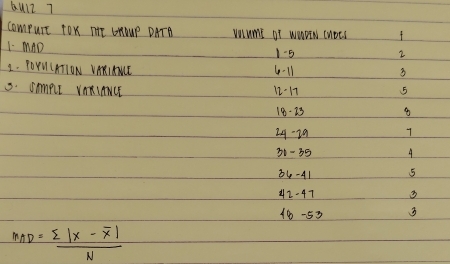 QUIZ 7
COMPUTE FOR THE GROUP DATA
1. MAD
2. POPULATION VARIANCE
3. SAMPLE VARIANCE
VOLUME OF WOODEN CUBES f
0-5 2
6-11 3
12-17 5
18-23 8
24-29 7
30-35 4
36-41 5
42-47 3
48-53 3
MAD = Σ |x - x̄|
N